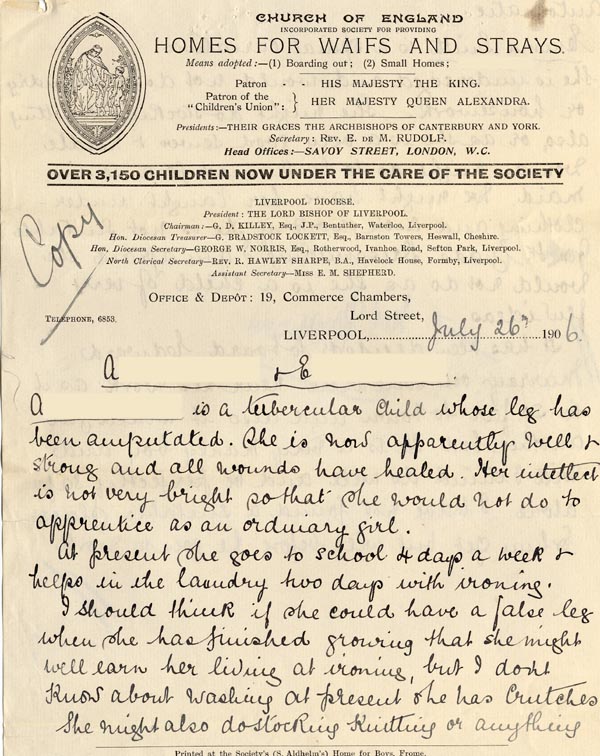 CHURCH OF ENGLAND
INCORPORATED SOCIETY FOR PROVIDING
HOMES FOR WAIFS AND STRAYS.
Means adopted:—(1) Boarding out; (2) Small Homes;
Patron - - HIS MAJESTY THE KING.
Patron of the "Children's Union": } HER MAJESTY QUEEN ALEXANDRA.
Presidents:—THEIR GRACES THE ARCHBISHOPS OF CANTERBURY AND YORK.
Secretary: REV. E. DE M. RUDOLF.
Head Offices:—SAVOY STREET, LONDON, W.C.
OVER 3,150 CHILDREN NOW UNDER THE CARE OF THE SOCIETY
LIVERPOOL DIOCESE.
President: THE LORD BISHOP OF LIVERPOOL.
Chairman:—G. D. KILLEY, Esq., J.P., Bentuther, Waterloo, Liverpool.
Hon. Diocesan Treasurer—G. BRADSTOCK LOCKETT, Esq., Barnston Towers, Heswall, Cheshire.
Hon. Diocesan Secretary—GEORGE W. NORRIS, Esq., Rotherwood, Ivanhoe Road, Sefton Park, Liverpool.
North Clerical Secretary—REV. R. HAWLEY SHARPE, B.A., Havelock House, Formby, Liverpool.
Assistant Secretary—MISS E. M. SHEPHERD.
Copy
OFFICE & DEPÔT: 19, Commerce Chambers,
Lord Street,
TELEPHONE, 6853.
LIVERPOOL, July 26th 1906.
A & E
A is a tubercular child whose leg has
been amputated. She is now apparently well &
strong and all wounds have healed. Her intellect
is not very bright so that she would not do to
apprentice as an ordinary girl.
At present she goes to school 4 days a week &
helps in the laundry two days with ironing.
I should think if she could have a false leg
when she has finished growing that she might
well earn her living at ironing, but I dont
know about washing at present she has crutches
She might also do stocking knitting or anything
Printed at the Society's (S. Aldhelm's) Home for Boys, Frome.